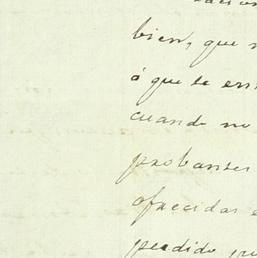 bien, que
á que te
cuando no
probantes
ofrecidas
perdido